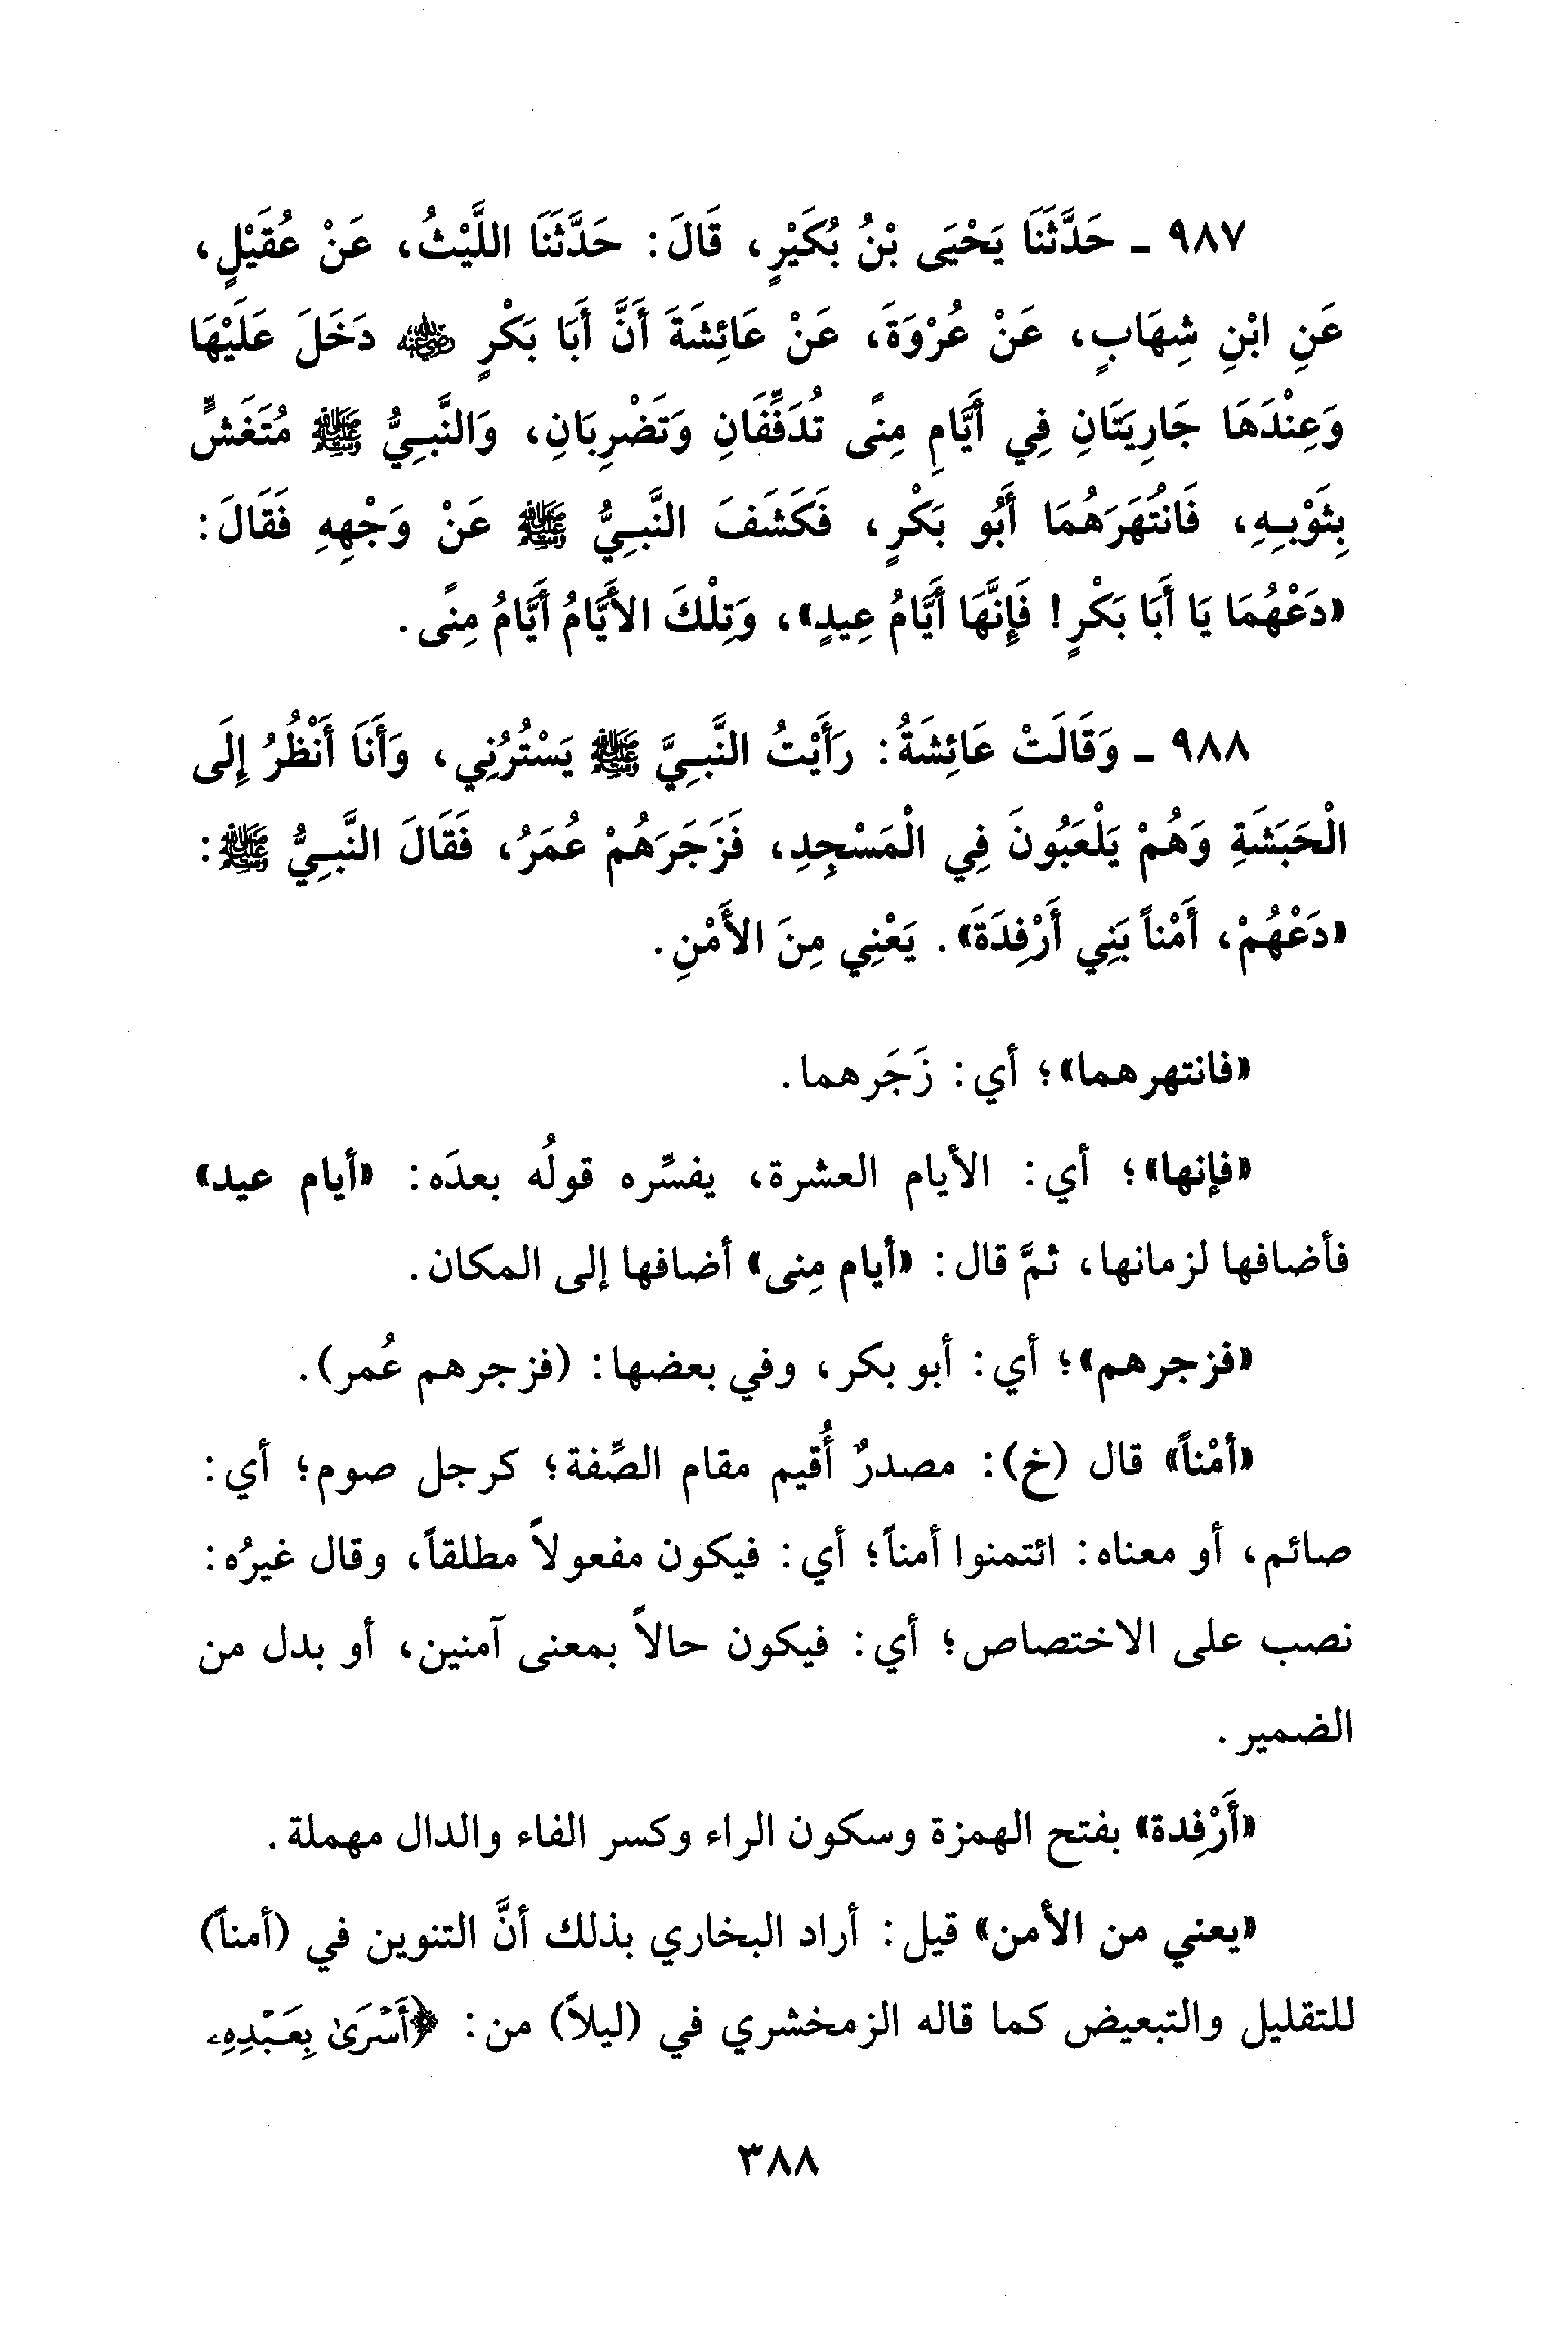 ٩٨٧ ـ حَدَّثَنَا يَحْيَى بْنُ بُكَيْرٍ، قَالَ: حَدَّثَنَا اللَّيْثُ، عَنْ عُقَيْلٍ،
عَنِ ابْنِ شِهَابٍ، عَنْ عُرْوَةَ، عَنْ عَائِشَةَ أَنَّ أَبَا بَكْرٍ رضي الله عنه دَخَلَ عَلَيْهَا
وَعِنْدَهَا جَارِيَتَانِ فِي أَيَّامِ مِنًى تُدَفِّفَانِ وَتَضْرِبَانِ، وَالنَّبِيُّ ﷺ مُتَغَشٍّ
بِثَوْبِهِ، فَانْتَهَرَهُمَا أَبُو بَكْرٍ، فَكَشَفَ النَّبِيُّ ﷺ عَنْ وَجْهِهِ فَقَالَ:
«دَعْهُمَا يَا أَبَا بَكْرٍ! فَإِنَّهَا أَيَّامُ عِيدٍ»، وَتِلْكَ الأَيَّامُ أَيَّامُ مِنًى.
٩٨٨ ـ وَقَالَتْ عَائِشَةُ: رَأَيْتُ النَّبِيَّ ﷺ يَسْتُرُنِي، وَأَنَا أَنْظُرُ إِلَى
الْحَبَشَةِ وَهُمْ يَلْعَبُونَ فِي الْمَسْجِدِ، فَزَجَرَهُمْ عُمَرُ، فَقَالَ النَّبِيُّ ﷺ:
«دَعْهُمْ، أَمْناً بَنِي أَرْفِدَةَ». يَعْنِي مِنَ الأَمْنِ.
«فانتهرهما»؛ أي: زَجَرهما.
«فإنها»؛ أي: الأيام العشرة، يفسِّره قولُه بعدَه: «أيام عيد»
فأضافها لزمانها، ثمَّ قال: «أيام مِنى» أضافها إلى المكان.
«فزجرهم»؛ أي: أبو بكر، وفي بعضها: (فزجرهم عُمر).
«أمْناً» قال (خ): مصدرٌ أُقيم مقام الصِّفة؛ كرجل صوم؛ أي:
صائم، أو معناه: ائتمنوا أمناً؛ أي: فيكون مفعولاً مطلقاً، وقال غيرُه:
نصب على الاختصاص؛ أي: فيكون حالاً بمعنى آمنين، أو بدل من
الضمير.
«أَرْفِدة» بفتح الهمزة وسكون الراء وكسر الفاء والدال مهملة.
«يعني من الأمن» قيل: أراد البخاري بذلك أنَّ التنوين في (أمناً)
للتقليل والتبعيض كما قاله الزمخشري في (ليلاً) من: ﴿أَسْرَىٰ بِعَبْدِهِۦ
٣٨٨